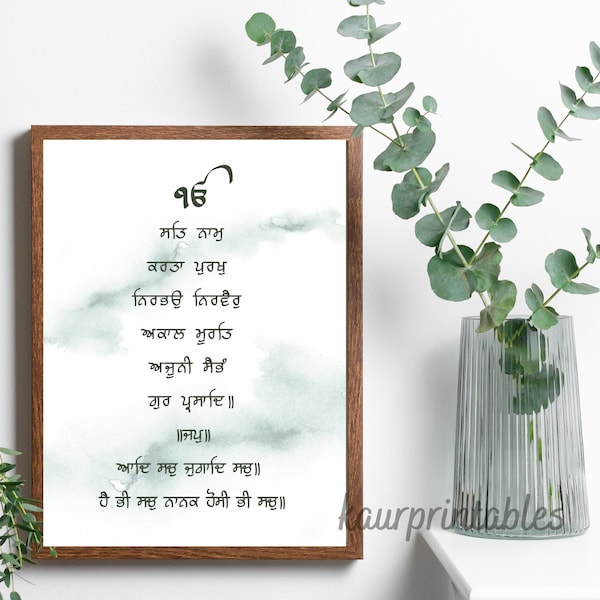 ੴ
ਸਤਿ ਨਾਮੁ
ਕਰਤਾ ਪੁਰਖੁ
ਨਿਰਭਉ ਨਿਰਵੈਰੁ
ਅਕਾਲ ਮੂਰਤਿ
ਅਜੂਨੀ ਸੈਭੰ
ਗੁਰ ਪ੍ਰਸਾਦਿ॥
॥ਜਪੁ॥
ਆਦਿ ਸਚੁ ਜੁਗਾਦਿ ਸਚੁ॥
ਹੈ ਭੀ ਸਚੁ ਨਾਨਕ ਹੋਸੀ ਭੀ ਸਚੁ॥
kaurprintables